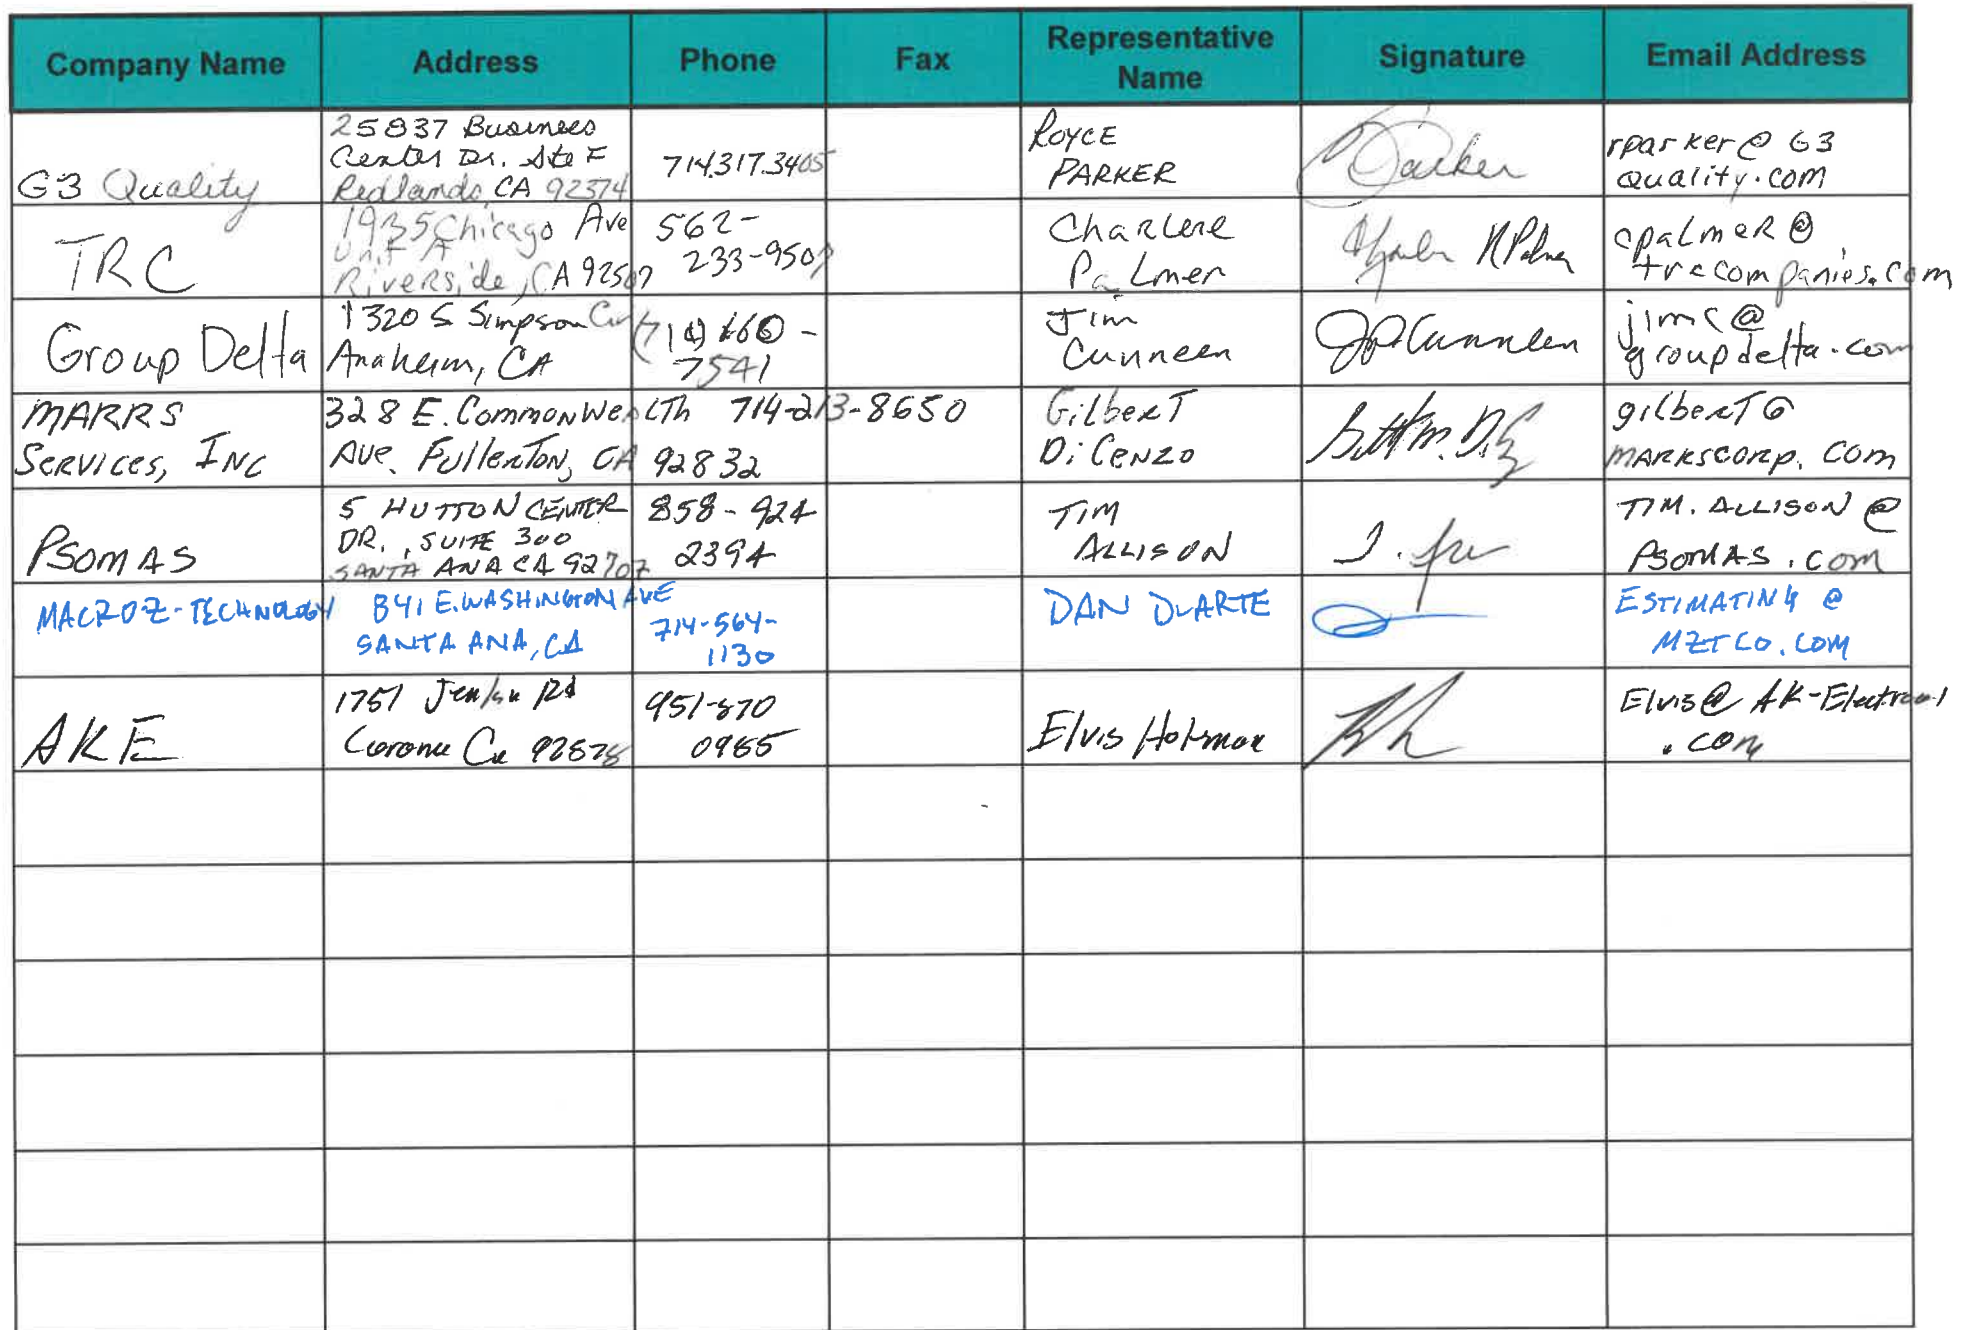 Company Name Address Phone Fax Representative Name Signature Email Address
25837 Business
Center Dr. Ste F
Redlands, CA 92374
G3 Quality
714.317.3405
ROYCE
PARKER
Parker
rparker@G3
quality.com
TRC
1935 Chicago Ave
Unit A
Riverside, CA 92507
562-
233-950
Charlene
Palmer
Palmer
cpalmer@
trccompanies.com
Group Delta
1320 S Simpson Cir
Anaheim, CA
(714) 660-
7541
Jim
Cunneen
Cunneen
jimc@
groupdelta.com
MARRS
Services, Inc
328 E. CommonWeaLTh
Ave. Fullerton, CA 92832
714-213-8650
Gilbert
DiCenzo
gilbertG
MARRSCORP.com
PSOMAS
5 HUTTON CENTER
DR., SUITE 300
SANTA ANA CA 92707
858-924
2394
TIM
ALLISON
TIM.ALLISON@
PSOMAS.com
MACRO-Z-TECHNOLOGY
841 E. WASHINGTON AVE
SANTA ANA, CA
714-564-
1130
DAN DUARTE
ESTIMATING@
MZTCO.COM
AKE
1751 Jenkins Rd
Corona Ca
951-870
0985
Elvis Holsman
Elvis@AK-Electrical
.com